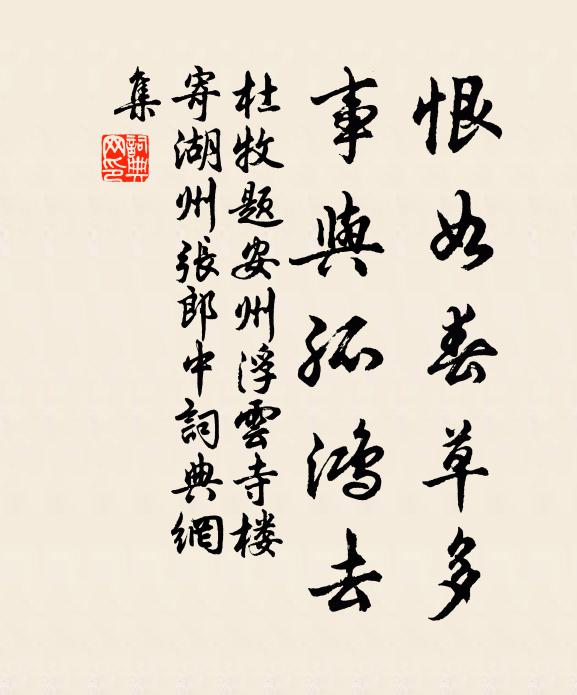 恨如春草多
事與孤鴻去
杜牧題安州浮雲寺楼
寄湖州張郎中詞典網
集
詞典
网印